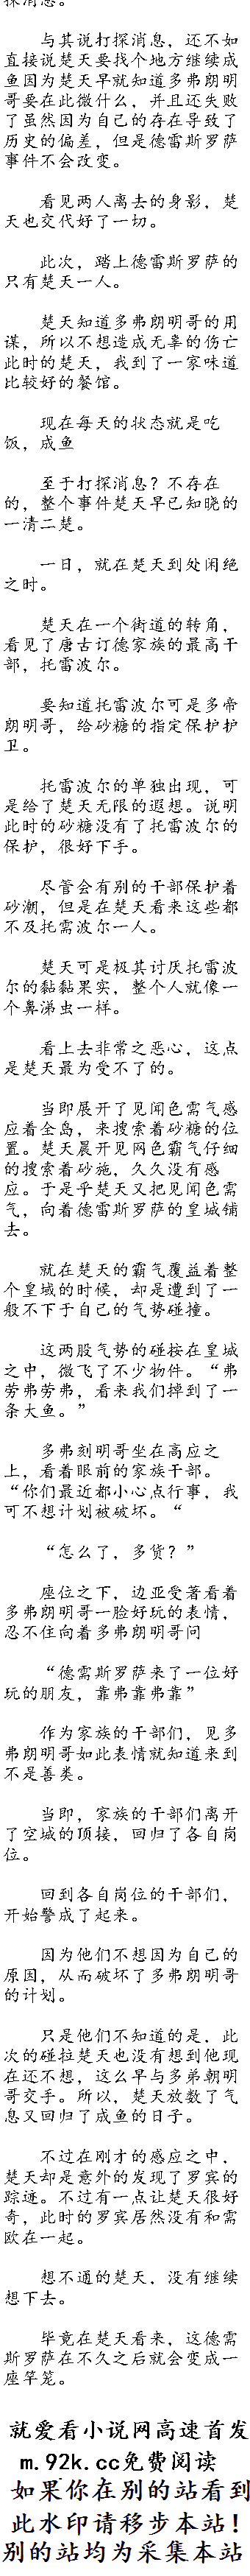 探消息。
与其说打探消息，还不如
直接说楚天要找个地方继续成
鱼因为楚天早就知道多弗朗明
哥要在此微什么，并且还失败
了虽然因为自己的存在导致了
历史的偏差，但是德雷斯罗萨
事件不会改变。
看见两人离去的身影，楚
天也交代好了一切。
此次，踏上德雷斯罗萨的
只有楚天一人。
楚天知道多弗朗明哥的用
谋，所以不想造成无辜的伤亡
此时的楚天，我到了一家味道
比较好的餐馆。
现在每天的状态就是吃
饭，成鱼
至于打探消息？不存在
的，整个事件楚天早已知晓的
一清二楚。
一日，就在楚天到处闲绝
之时。
楚天在一个街道的转角，
看见了唐古订德家族的最高干
部，托雷波尔。
要知道托雷波尔可是多帝
朗明哥，给砂糖的指定保护护
卫。
托雷波尔的单独出现，可
是给了楚天无限的遐想。说明
此时的砂糖没有了托雷波尔的
保护，很好下手。
尽管会有别的干部保护着
砂潮，但是在楚天看来这些都
不及托需波尔一人。
楚天可是极其讨厌托雷波
尔的黏黏果实，整个人就像一
个鼻涕虫一样。
看上去非常之恶心，这点
是楚天最为受不了的。
当即展开了见闻色需气感
应着全岛，来搜索着砂糖的位
置。楚天晨开见网色霸气仔细
的搜索着砂施，久久没有感
应。于是乎楚天又把见闻色需
气，向着德雷斯罗萨的皇城铺
去。
就在楚天的霸气覆益着整
个皇域的时候，却是遭到了一
般不下于自己的气势碰撞。
这两股气势的碰桉在皇城
之中，微飞了不少物件。“弗
劳弗劳弗，看来我们掉到了一
条大鱼。”
多弗刻明哥坐在高应之
上，看着眼前的家族干部。
“你们最近都小心点行事，我
可不想计划被破坏。“
“怎么了，多货？”
座位之下，边亚受著看着
多弗朗明哥一脸好玩的表情，
忍不住向着多弗朗明哥问
“德需斯罗萨来了一位好
玩的朋友，靠弗靠弗靠”
作为家族的干部们，见多
弗朗明哥如此表情就知道来到
不是善类。
当即，家族的干部们离开
了空城的顶接，回归了各自岗
位。
回到各自岗位的干部们，
开始警成了起来。
因为他们不想因为自己的
原因，从而破坏了多弗朗明哥
的计划。
只是他们不知道的是，此
次的碰拉楚天也没有想到他现
在还不想，这么早与多弟朝明
哥交手。所以，楚天放数了气
息又回归了成鱼的日子。
不过在刚才的感应之中，
楚天却是意外的发现了罗宾的
踪迹。不过有一点让楚天很好
奇，此时的罗宾居然没有和需
欧在一起。
想不通的楚天，没有继续
想下去。
毕竟在楚天看来，这德需
斯罗萨在不久之后就会变成一
座竿笼。
就爱看小说网高速首发
m.92k.cc免费阅读
如果你在别的站看到
此水印请移步本站！
别的站均为采集本站